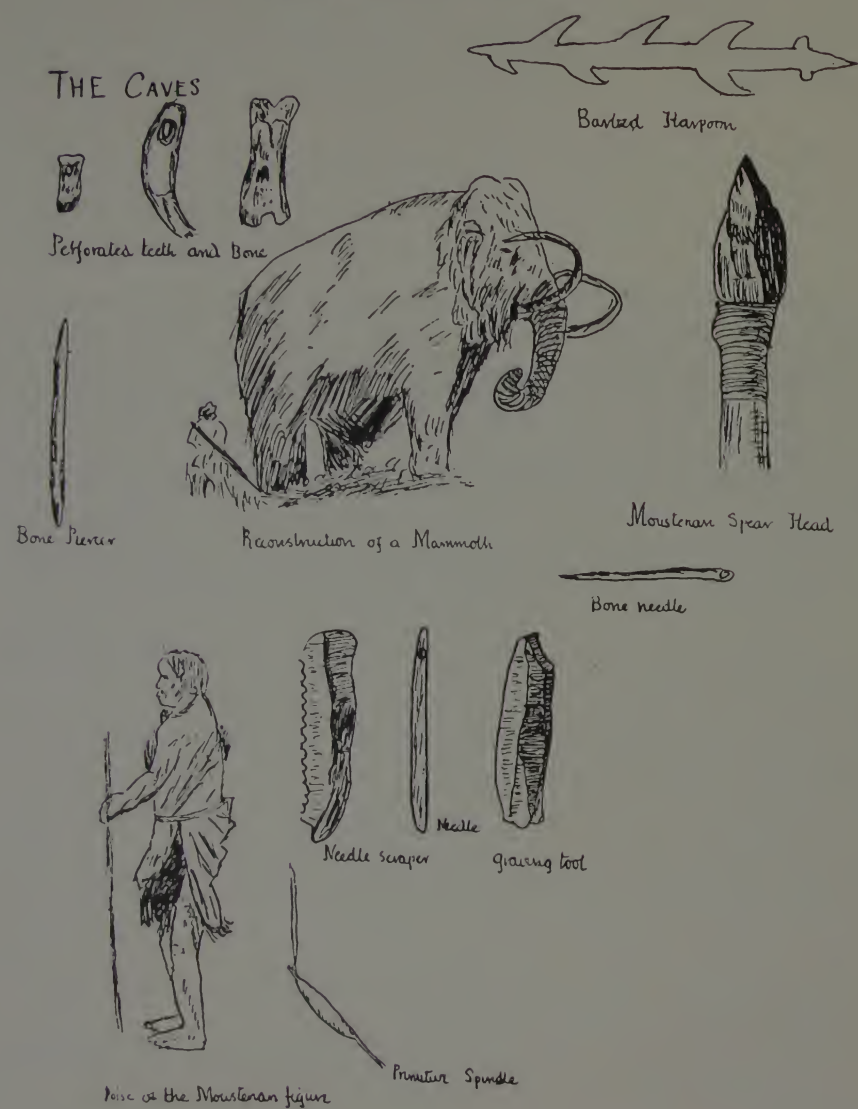 THE CAVES
Barbed Harpoon
Perforated teeth and Bone
Bone Piercer
Reconstruction of a Mammoth
Mousterian Spear Head
Bone needle
Needle scraper
Needle
graving tool
Primitive Spindle
Pose of the Mousterian figure